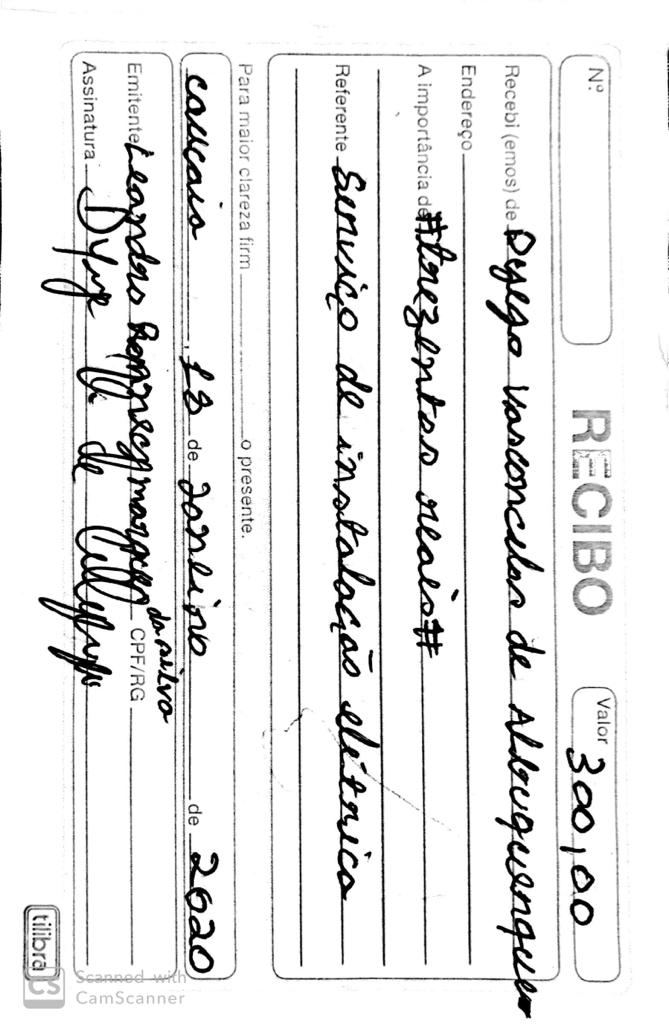 Nº
RECIBO
Valor 300,00
Recebi (emos) de Dyego Vasconcelos de Albuquerque
Endereço
A importância de #trezentos reais#
Referente Serviço de instalação elétrica
Para maior clareza firm o presente.
caucaia, 18 de Janeiro de 2020
Emitente Leandro marques da silva CPF/RG
Assinatura
tilibra
CS Scanned with
CamScanner